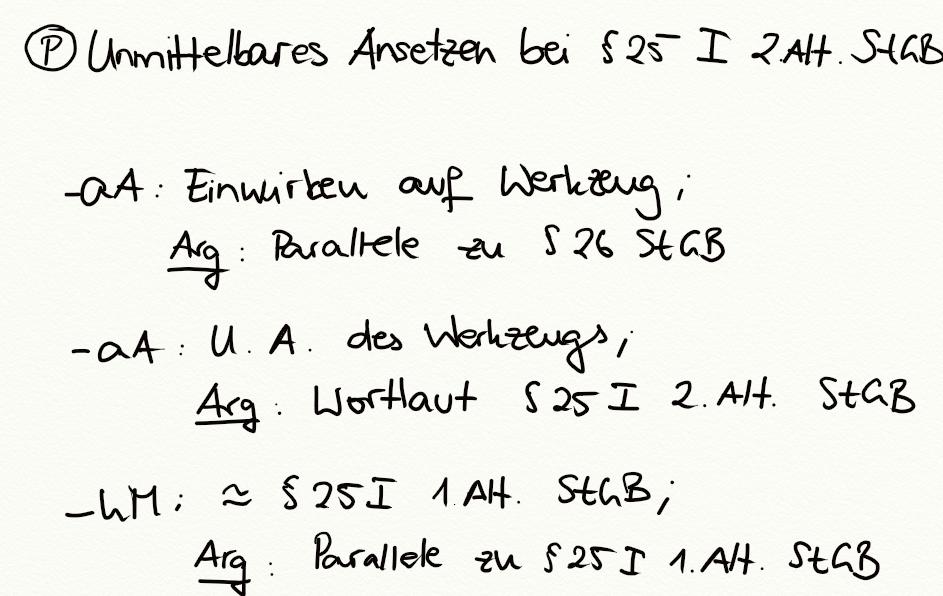 Ⓟ Unmittelbares Ansetzen bei § 25 I 2. Alt. StGB
- aA : Einwirken auf Werkzeug ;
Arg : Parallele zu § 26 StGB
- aA : U. A. des Werkzeugs ;
Arg : Wortlaut § 25 I 2. Alt. StGB
- hM : ≈ § 25 I 1. Alt. StGB ;
Arg : Parallele zu § 25 I 1. Alt. StGB